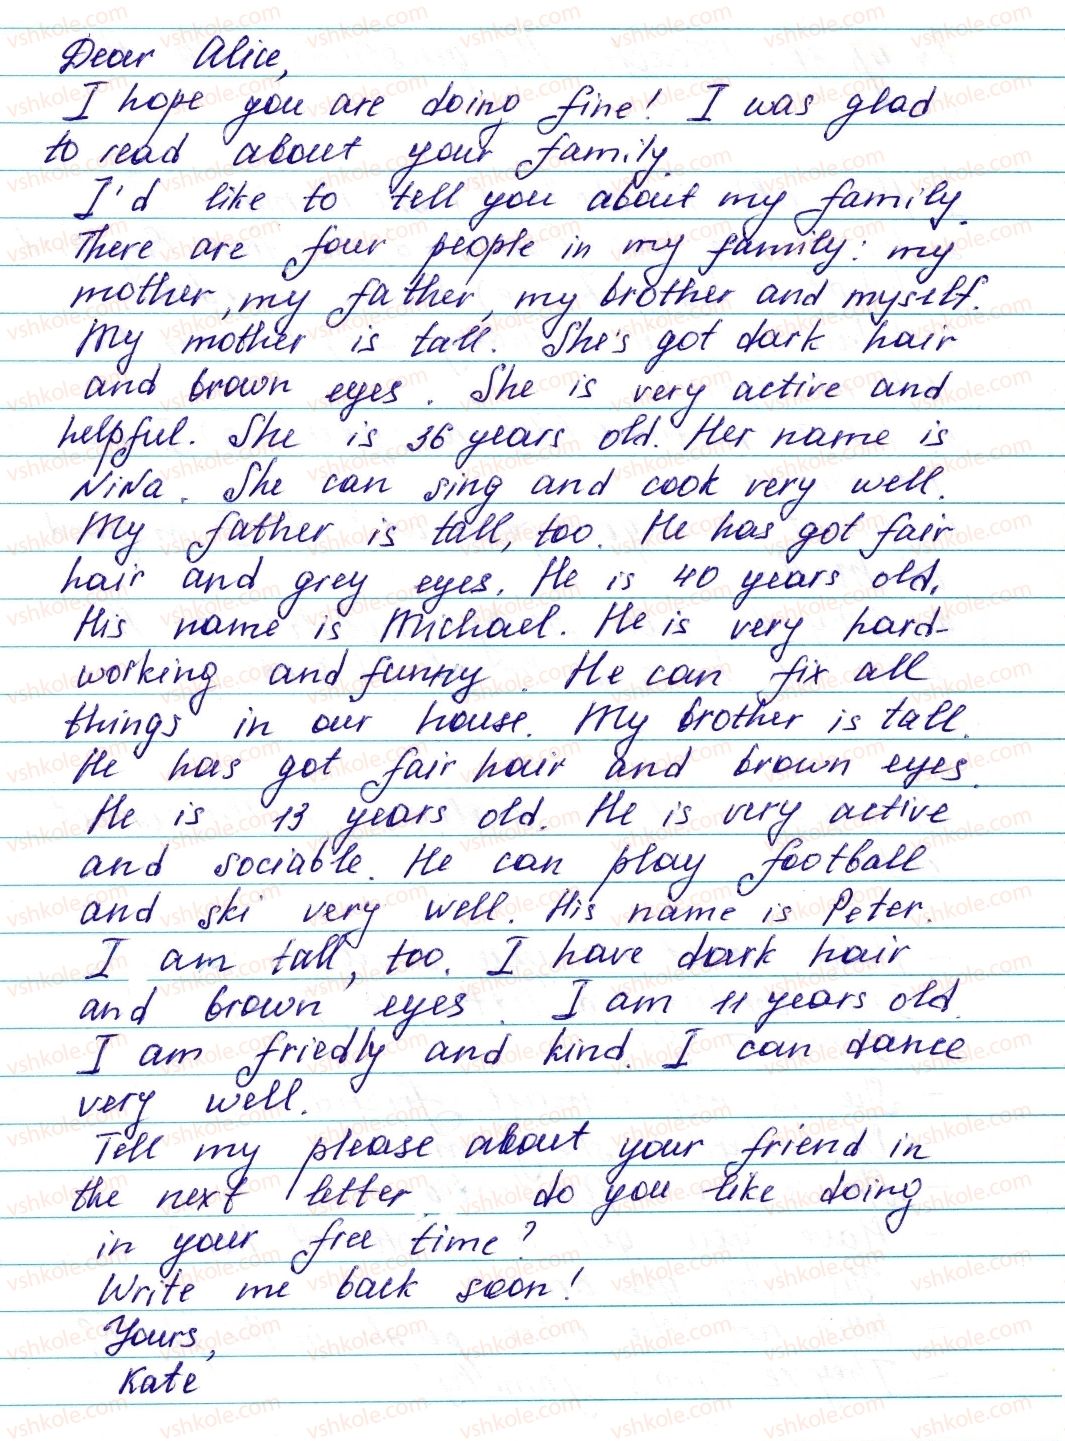 Dear Alice,
I hope you are doing fine! I was glad
to read about your family.
I'd like to tell you about my family.
There are four people in my family: my
mother, my father, my brother and myself.
My mother is tall. She's got dark hair
and brown eyes. She is very active and
helpful. She is 36 years old. Her name is
Nina. She can sing and cook very well.
My father is tall, too. He has got fair
hair and grey eyes. He is 40 years old.
His name is Michael. He is very hard-
working and funny. He can fix all
things in our house. My brother is tall.
He has got fair hair and brown eyes.
He is 13 years old. He is very active
and sociable. He can play football
and ski very well. His name is Peter.
I am tall, too. I have dark hair
and brown eyes. I am 11 years old.
I am friedly and kind. I can dance
very well.
Tell my please about your friend in
the next letter. do you like doing
in your free time?
Write me back soon!
Yours,
Kate
vshkole.com